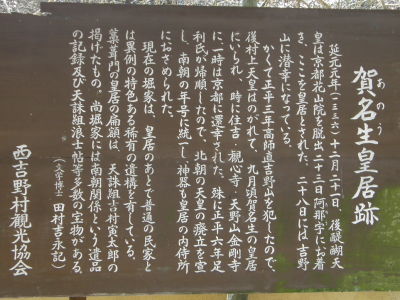 賀名生皇居跡
あのう
延元元年(一三三六)十二月二十一日、後醍醐天
皇は京都花山院を脱出二十三日阿那字にお着
き、ここを皇居とされた。二十八日には吉野
山に潜幸になっている。
かくて正平三年高師直吉野山を犯したので、
後村上天皇はのがれて、九月頃賀名生の皇居
にいられ、時に住吉・観心寺・天野山金剛寺
に、一時は京都に還幸された。殊に正平六年足
利氏が帰順したので、北朝の天皇の廃立を宣
し、南朝の年号に統一し、神器も皇居の内侍所
におさめられた。
現在の堀家は、皇居のあとで普通の民家と
は異例の特色ある稀有の遺構を有している。
藁葺門の皇居の扁額は、天誅組吉村寅太郎の
掲げたもの。尚堀家には南朝関係という遺品
の記録及び天誅組浪士帖等多数の宝物がある。
(文学博士 田村吉永記)
西吉野村観光協会